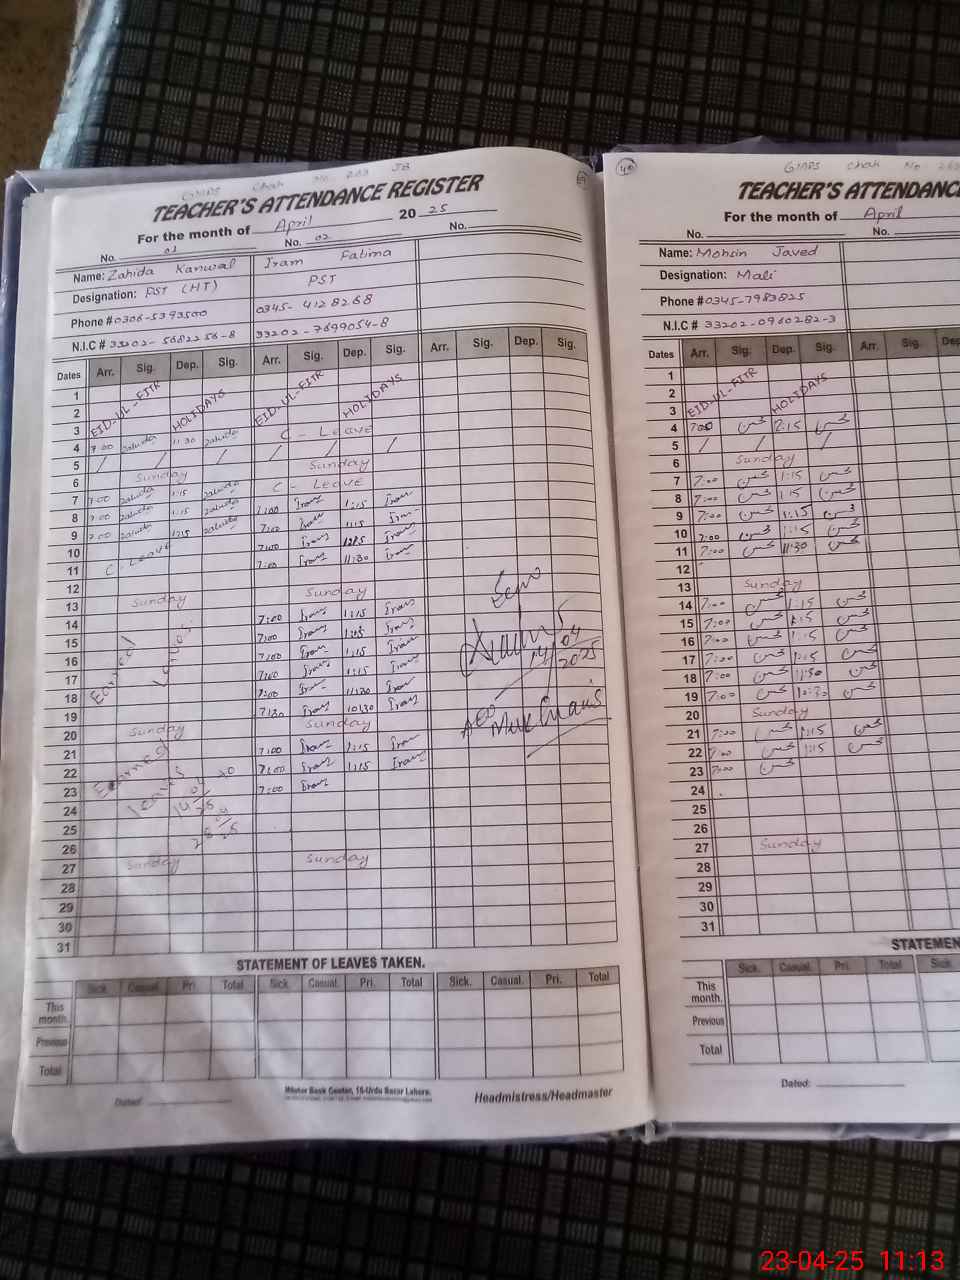 GMPS Chak No 203 JB
TEACHER'S ATTENDANCE REGISTER
For the month of April 20 25
No. 01 No. 02 No.
Name: Zahida Kanwal Iram Fatima
Designation: PST (HT) PST
Phone # 0306-5393500 0345-4128268
N.I.C # 33202-5682256-8 33202-7699054-8
Dates Arr. Sig. Dep. Sig. Arr. Sig. Dep. Sig. Arr. Sig. Dep. Sig.
1
2
3 EID-UL-FITR HOLIDAYS EID-UL-FITR HOLIDAYS
4 7:00 Zahida 11:30 Zahida C-Leave
5 / / / / / /
6 Sunday Sunday
7 7:00 Zahida 1:15 Zahida C-LEAVE
8 7:00 Zahida 1:15 Zahida 7:00 Iram 1:15 Iram
9 7:00 Zahida 1:15 Zahida 7:00 Iram 1:15 Iram
10 C-Leave 7:00 Iram 1:15 Iram
11 7:00 Iram 11:30 Iram
12
13 Sunday Sunday
14 7:00 Iram 1:15 Iram
15 7:00 Iram 1:15 Iram
16 7:00 Iram 1:15 Iram
17 7:00 Iram 1:15 Iram
18 7:00 Iram 11:30 Iram
19 7:30 Iram 10:30 Iram
20 Sunday Sunday
21 7:00 Iram 1:15 Iram
22 7:00 Iram 1:15 Iram
23 7:00 Iram
24
25
26
27 Sunday Sunday
28
29
30
31
Earned Leaves
leaves
to
14/04/2025
AEO
STATEMENT OF LEAVES TAKEN.
Sick. Casual. Pri. Total Sick. Casual. Pri. Total Sick. Casual. Pri. Total
This month.
Previous
Total
Dated:
Mister Book Center, 16-Urdu Bazar Lahore.
Headmistress/Headmaster
40
GMPS Chak No
TEACHER'S ATTENDANCE
For the month of April
No. No.
Name: Mohsin Javed
Designation: Mali
Phone # 0345-7983825
N.I.C # 33202-0960282-3
Dates Arr. Sig. Dep. Sig. Arr. Sig.
1
2
3 EID-UL-FITR HOLIDAYS
4 7:00 محسن 2:15 محسن
5 / / / /
6 Sunday
7 7:00 محسن 1:15 محسن
8 7:00 محسن 1:15 محسن
9 7:00 محسن 1:15 محسن
10 7:00 محسن 1:15 محسن
11 7:00 محسن 11:30 محسن
12
13 Sunday
14 7:00 محسن 1:15 محسن
15 7:00 محسن 1:15 محسن
16 7:00 محسن 1:15 محسن
17 7:00 محسن 1:15 محسن
18 7:00 محسن 11:30 محسن
19 7:00 محسن 10:30 محسن
20 Sunday
21 7:00 محسن 1:15 محسن
22 7:00 محسن 1:15 محسن
23 7:00 محسن
24
25
26
27 Sunday
28
29
30
31
Sick. Casual. Pri. Total Sick.
This month.
Previous
Total
Dated:
23-04-25 11:13